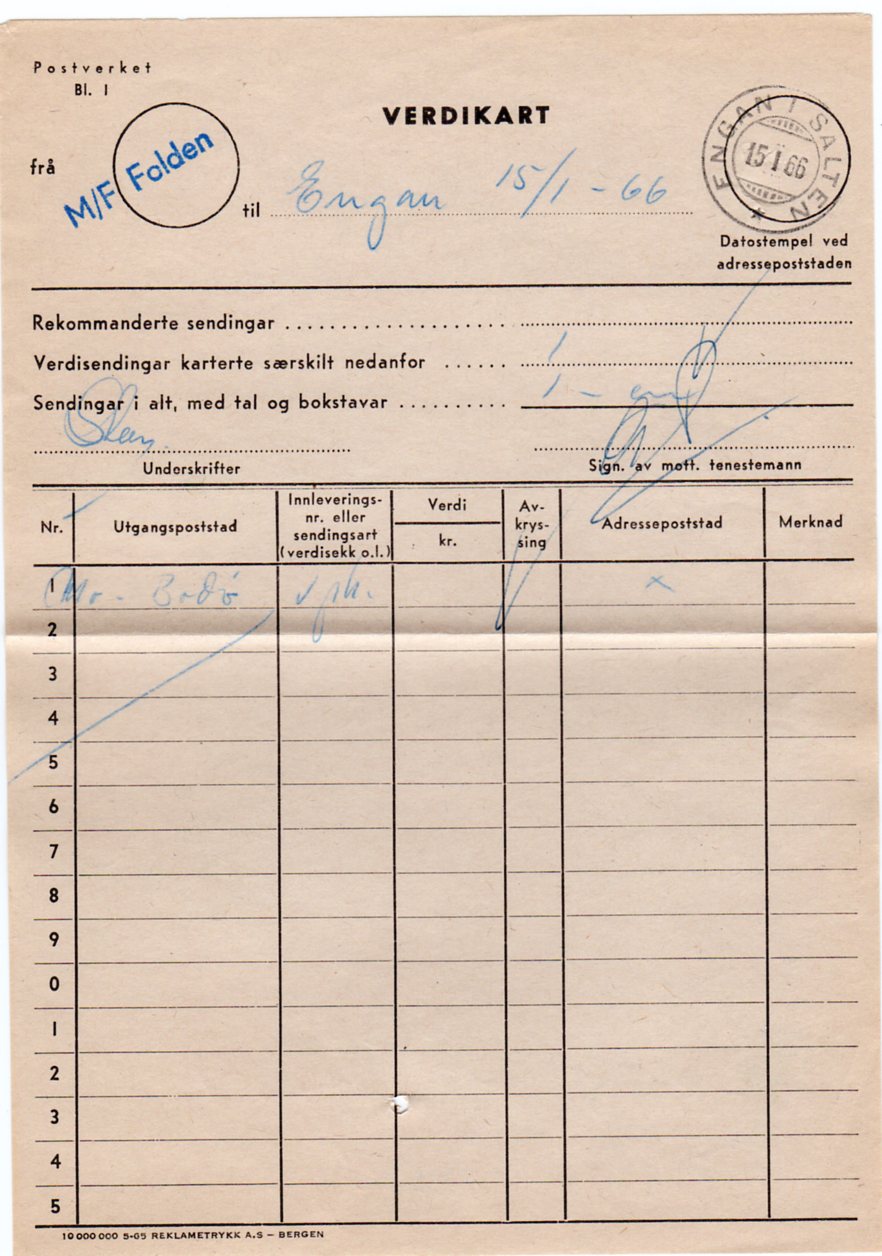 Postverket
Bl. 1
VERDIKART
frå
M/F Folden
til Engan 15/1 - 66
ENGAN I SALTEN
15 1 66
Datostempel ved
adressepoststaden
Rekommanderte sendingar
Verdisendingar karterte særskilt nedanfor 1
Sendingar i alt, med tal og bokstavar 1 -
Underskrifter
Sign. av mott. tenestemann
Nr.
Utgangspoststad
Innleverings-
nr. eller
sendingsart
(verdisekk o.l.)
Verdi
kr.
Av-
krys-
sing
Adressepoststad
Merknad
1 Mo - Bodø v pk. x
2
3
4
5
6
7
8
9
0
1
2
3
4
5
10 000 000 5-65 REKLAMETRYKK A.S – BERGEN